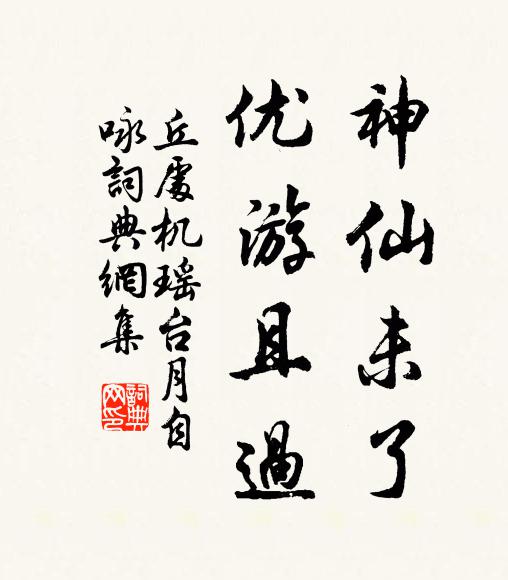 神仙未了
优游且過
丘處机瑶台月自
咏詞典網集
詞典網印